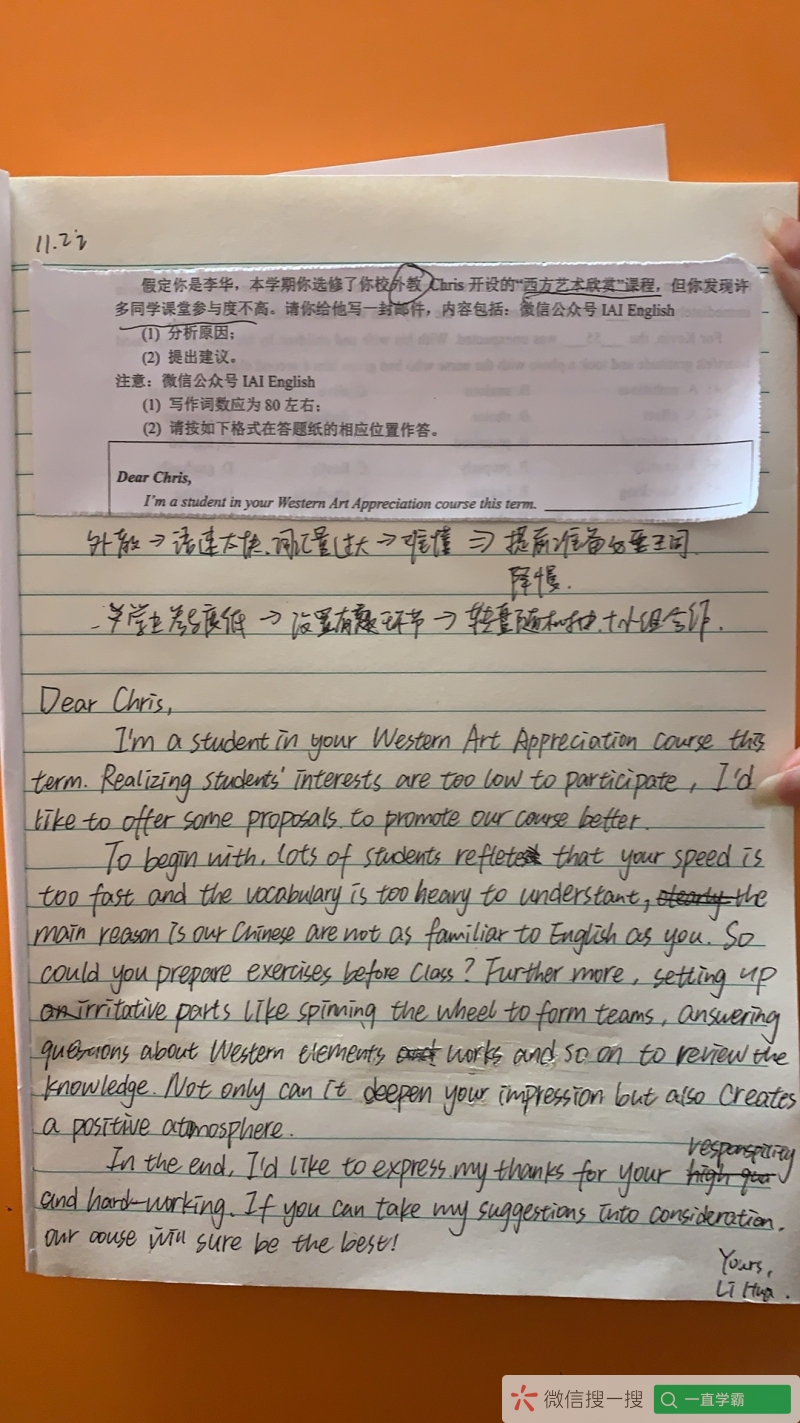 11.22
假定你是李华，本学期你选修了你校外教 Chris 开设的“西方艺术欣赏”课程，但你发现许
多同学课堂参与度不高。请你给他写一封邮件，内容包括：微信公众号 IAI English
(1) 分析原因；
(2) 提出建议。
注意：微信公众号 IAI English
(1) 写作词数应为 80 左右；
(2) 请按如下格式在答题纸的相应位置作答。
Dear Chris,
I'm a student in your Western Art Appreciation course this term.
外教→语速太快、词汇量过大→难懂 ⇒ 提前准备
降慢.
学生参与度低→设置有趣环节→转盘随机抽+小组合作.
Dear Chris,
I'm a student in your Western Art Appreciation course this
term. Realizing students' interests are too low to participate, I'd
like to offer some proposals to promote our course better.
To begin with, lots of students reflete that your speed is
too fast and the vocabulary is too heavy to understant, clearly the
main reason is our Chinese are not as familiar to English as you. So
could you prepare exercises before class? Further more, setting up
an irritative parts like spinning the wheel to form teams, answering
questions about Western elements and works and so on to review the
knowledge. Not only can it deepen your impression but also creates
a positive atmosphere.
responspility
In the end, I'd like to express my thanks for your high qua
and hard-working. If you can take my suggestions into consideration,
our couse will sure be the best!
Yours,
Li Hua.
微信搜一搜 一直学霸